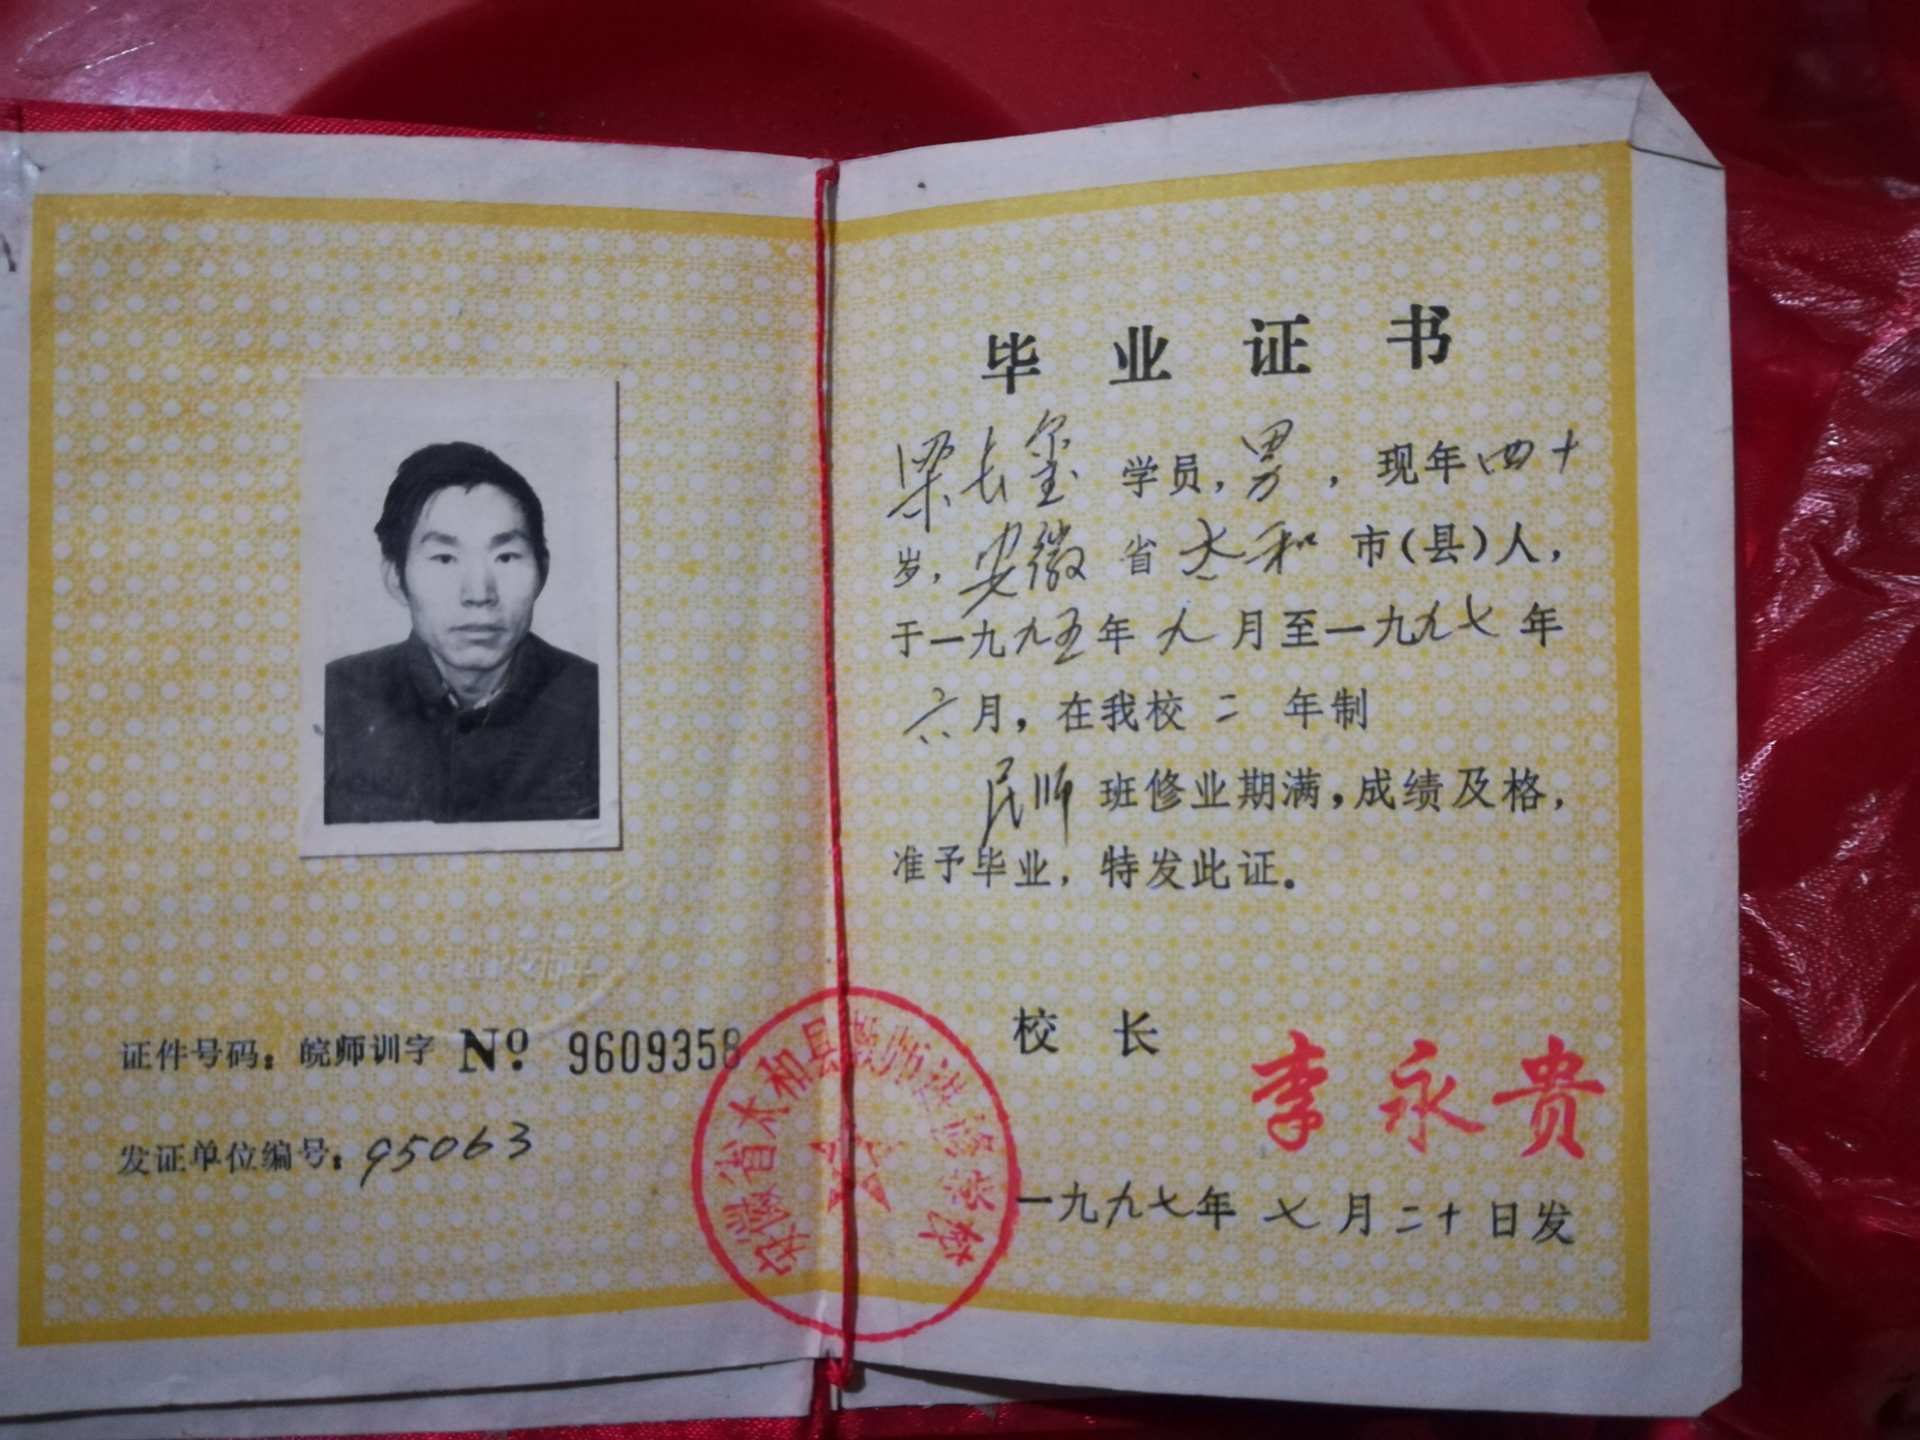 证件号码：皖师训字 № 9609358
发证单位编号：95063
毕业证书
梁长玺 学员，男，现年四十
岁，安徽省太和市(县)人，
于一九九五年九月至一九九七年
六月，在我校二年制
民师班修业期满，成绩及格，
准予毕业，特发此证。
校长
李永贵
一九九七年七月二十日发
安徽省太和县教师进修学校